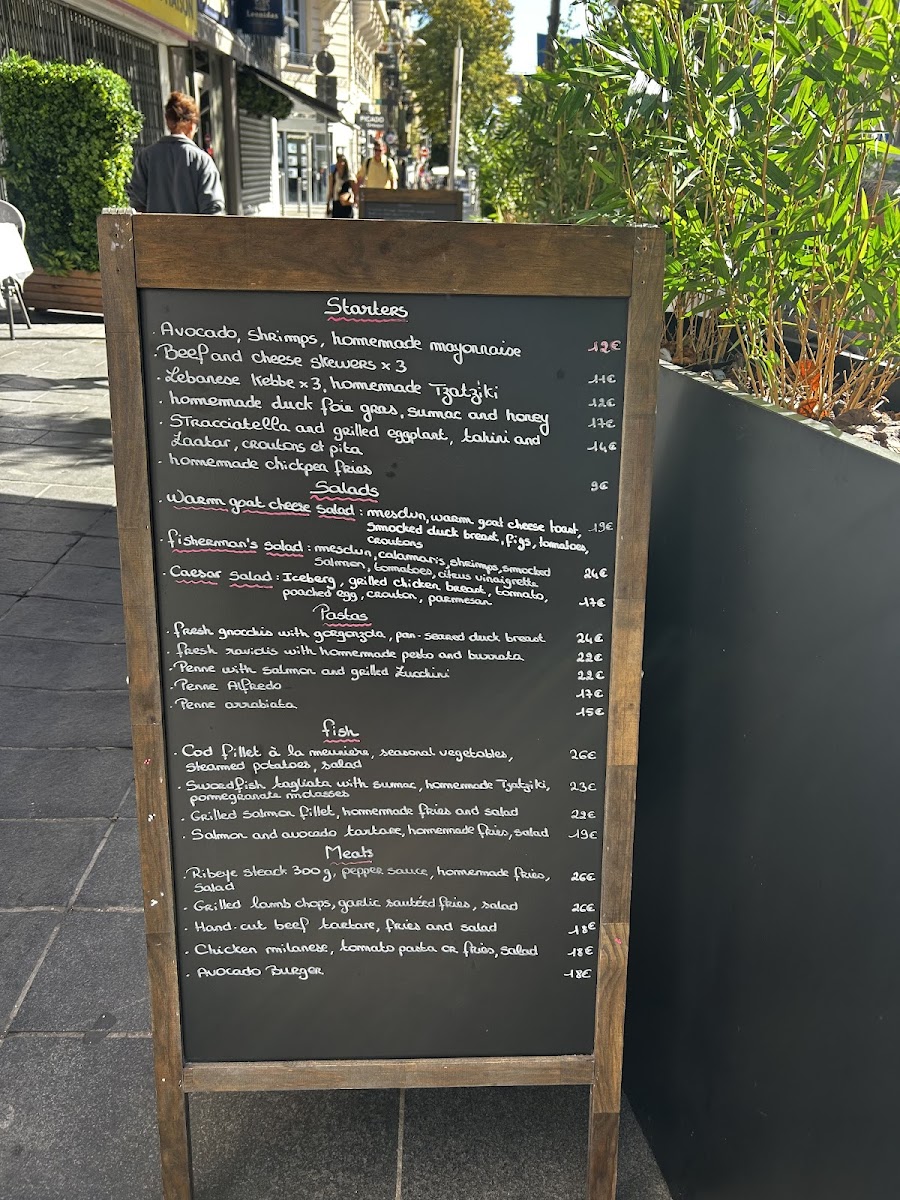 Leonidas
PICADO
Starters
· Avocado, Shrimps, homemade mayonnaise 12€
· Beef and cheese skewers x 3 11€
· Lebanese Kebbe x 3, homemade Tzatziki 12€
· homemade duck foie gras, sumac and honey 17€
· Stracciatella and grilled eggplant, tahini and
Zaatar, croutons et pita 14€
· homemade chickpea fries 9€
Salads
· Warm goat cheese salad : mesclun, warm goat cheese toast, 19€
smocked duck breast, figs, tomatoes,
croutons
· fisherman's salad : mesclun, calamaris, shrimps, smocked 24€
salmon, tomatoes, citrus vinaigrette
· Caesar salad : Iceberg, grilled chicken breast, tomato, 17€
poached egg, crouton, parmesan
Pastas
· fresh gnocchis with gorgonzola, pan-seared duck breast 24€
· fresh raviolis with homemade pesto and burrata 22€
· Penne with salmon and grilled Zucchini 22€
· Penne Alfredo 17€
· Penne arrabiata 15€
fish
· Cod fillet à la meuniere, seasonal vegetables, 26€
steamed potatoes, salad
· Swordfish tagliata with sumac, homemade Tzatziki, 23€
pomegranate molasses
· Grilled salmon fillet, homemade fries and salad 22€
· Salmon and avocado tartare, homemade fries, salad 19€
Meats
· Ribeye steack 300g, pepper sauce, homemade fries, 26€
salad
· Grilled lamb chops, garlic sautéed fries, salad 26€
· Hand-cut beef tartare, fries and salad 18€
· Chicken milanese, tomato pasta or fries, salad 18€
· Avocado Burger 18€